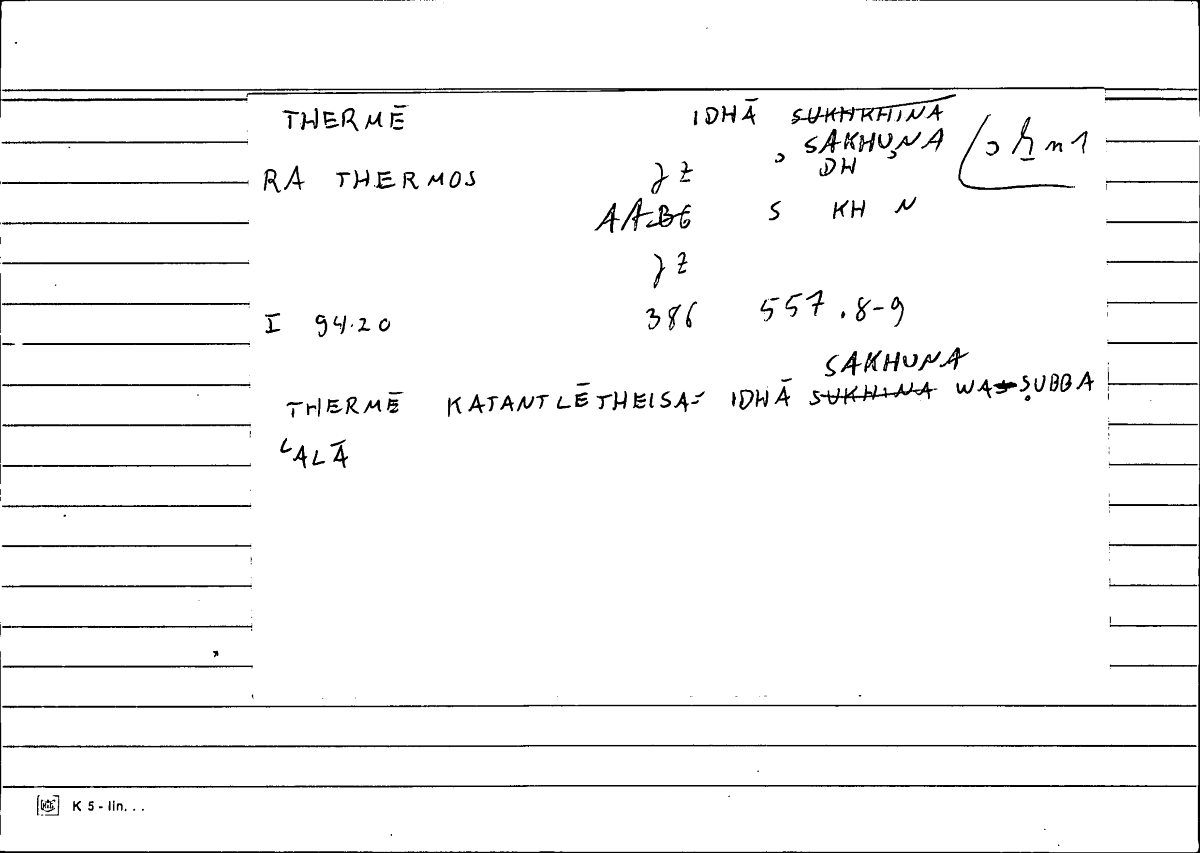 THERMĒ IDHĀ SUKHKHINA
SAKHUNA
RA THERMOS DH
AABE S KH N
I 94.20 386 557.8-9
SAKHUNA
THERMĒ KATANTLĒTHEISA= IDHĀ SUKHINA WA ṢUBBA
ʿALĀ
K 5 - lin. . .